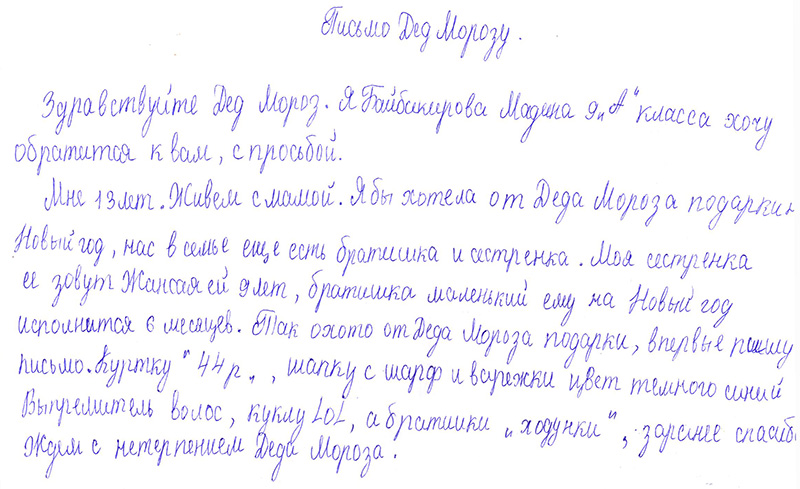 Письмо Дед Морозу.
Здравствуйте Дед Мороз. Я Байбакирова Мадина 9 „А" класса хочу
обратится к вам, с просьбой.
Мне 13 лет. Живем с мамой. Я бы хотела от Деда Мороза подарки н
Новый год, нас в семье еще есть братишка и сестренка. Моя сестренка
ее зовут Жансая ей 9 лет, братишка маленький ему на Новый год
исполнится 6 месяцев. Так охото от Деда Мороза подарки, впервые пишу
письмо. Куртку " 44 р „, шапку с шарф и варежки цвет темного синий
Выпремитель волос, куклу LOL, а братишки „ходунки", заранее спасиб
Ждем с нетерпением Деда Мороза.